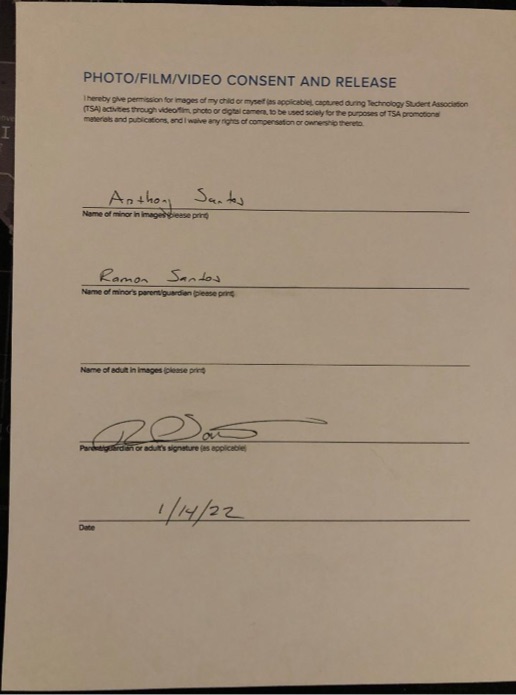 PHOTO/FILM/VIDEO CONSENT AND RELEASE
I hereby give permission for images of my child or myself (as applicable), captured during Technology Student Association
(TSA) activities through video/film, photo or digital camera, to be used solely for the purposes of TSA promotional
materials and publications, and I waive any rights of compensation or ownership thereto.
Anthony Santos
Name of minor in images (please print)
Ramon Santos
Name of minor's parent/guardian (please print)
Name of adult in images (please print)
Parent/guardian or adult's signature (as applicable)
1/14/22
Date